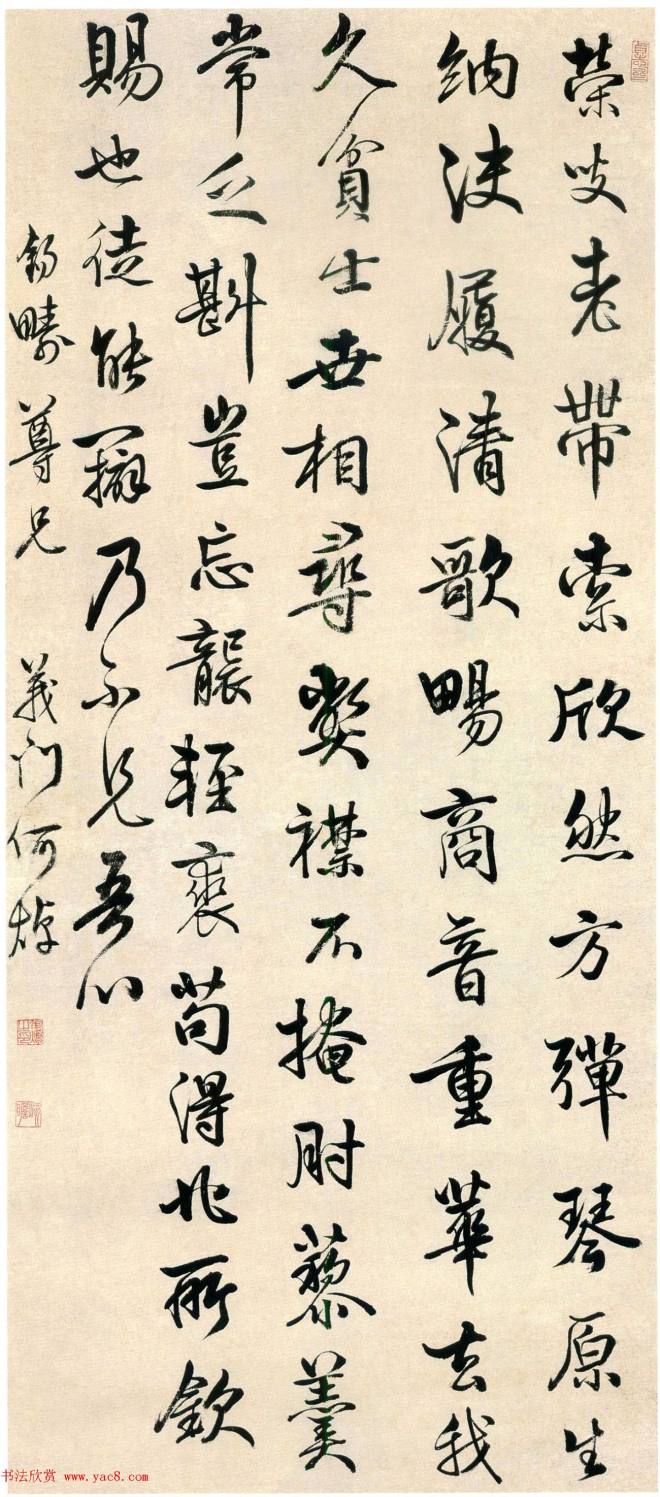 榮叟老帶索欣然方彈琴原生
納決履清歌暢商音重華去我
久貧士世相尋獘襟不掩肘藜羹
常乏斟豈忘襲輕裘苟得非所欽
賜也徒能辯乃不見吾心
錫疇尊兄 義門何焯
书法欣赏 www.yac8.com